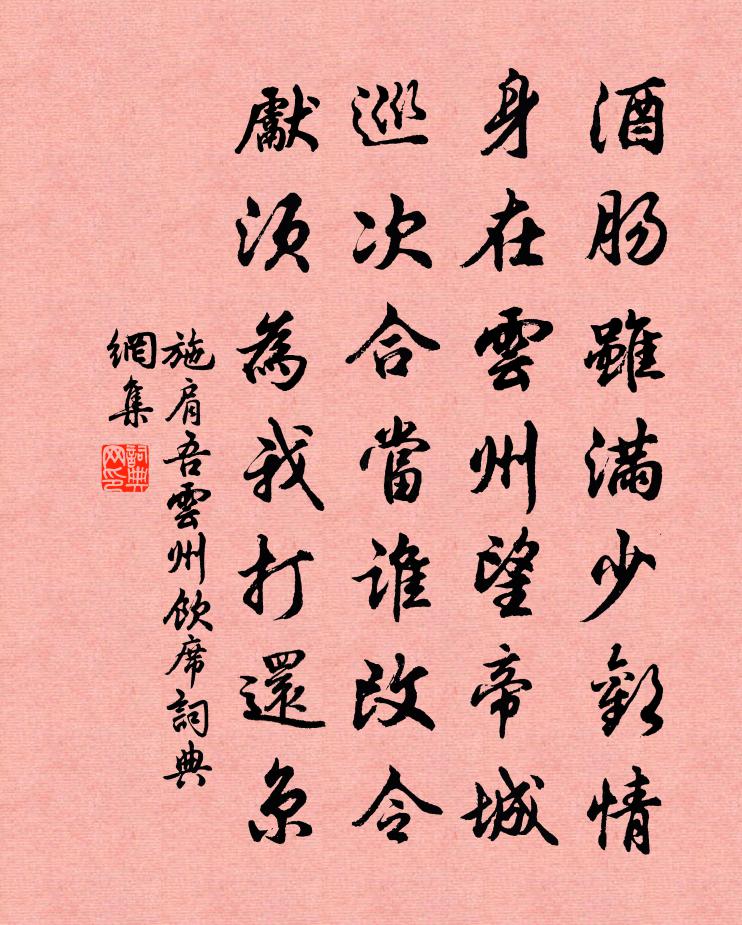 酒腸雖滿少歡情
身在雲州望帝城
巡次合當誰改令
獻須為我打還京
施肩吾雲州飲席詞典
網集
詞典
网印